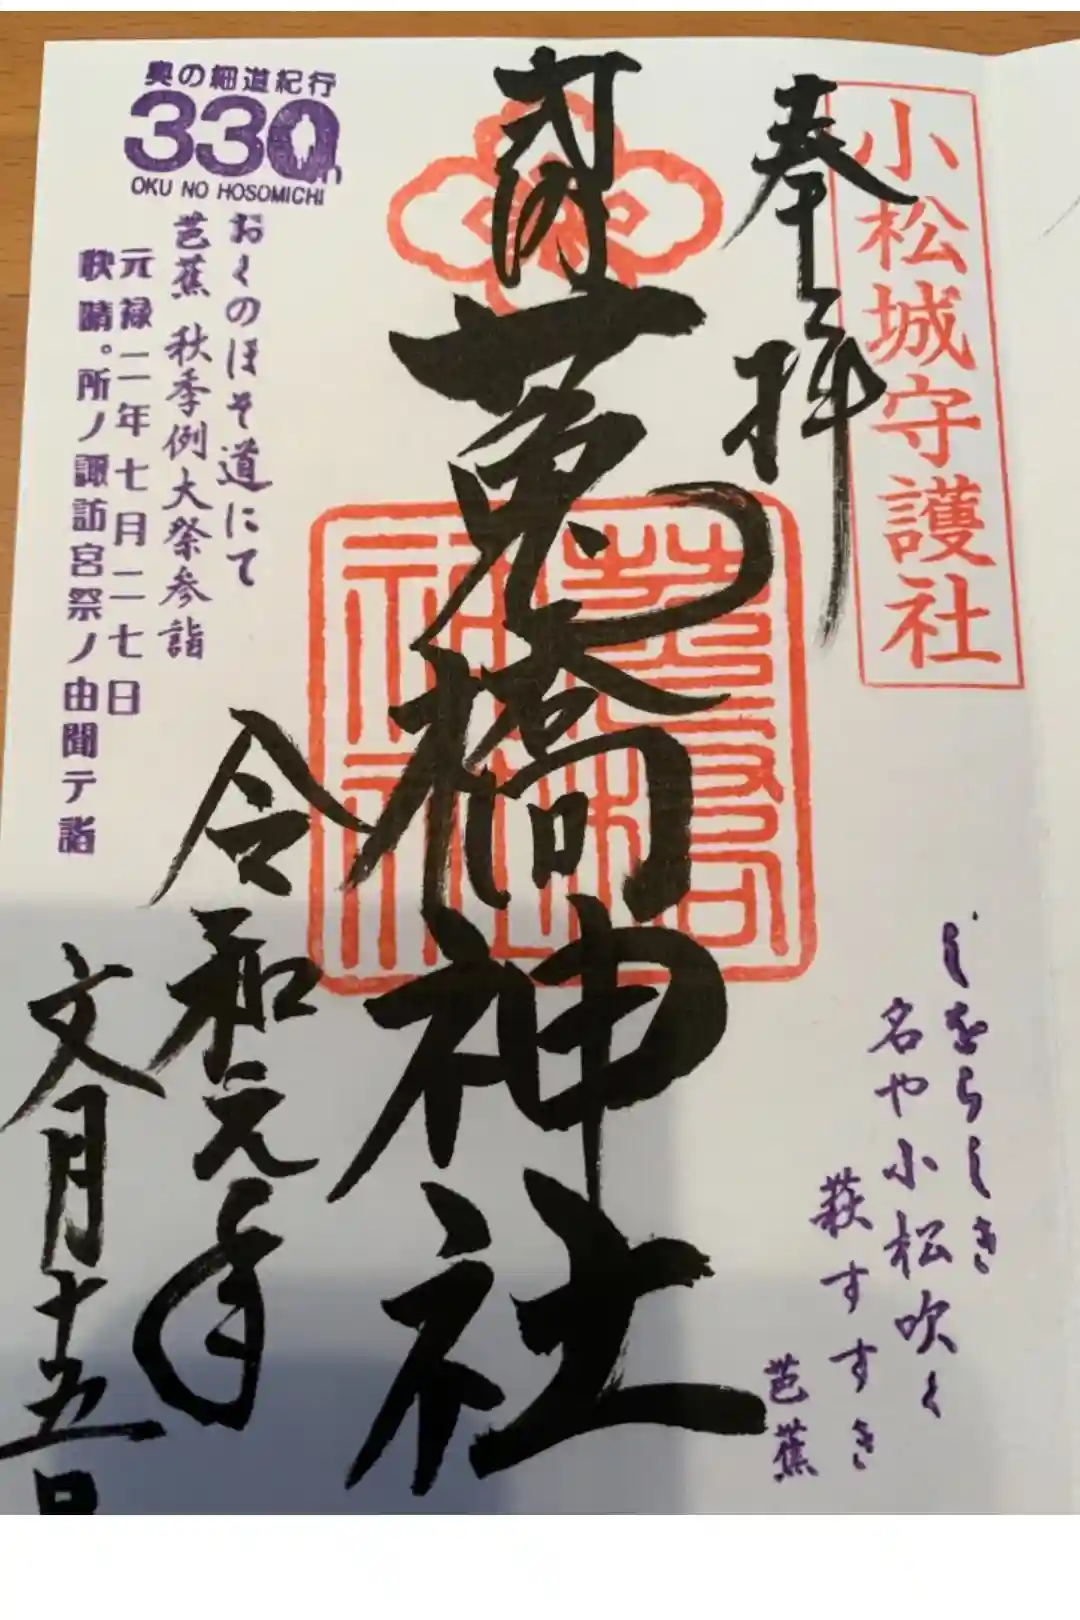 小松城守護社
奉拝
莵橋神社
令和元年
文月十五日
奥の細道紀行
330th
OKU NO HOSOMICHI
おくのほそ道にて
芭蕉 秋季例大祭参詣
元禄二年七月二七日
快晴。所ノ諏訪宮祭ノ由聞テ詣
しをらしき
名や小松吹く
萩すすき
芭蕉